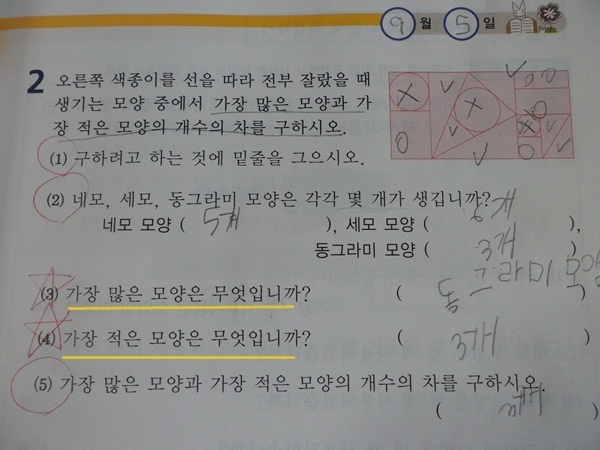 9 월 5 일
2 오른쪽 색종이를 선을 따라 전부 잘랐을 때
생기는 모양 중에서 가장 많은 모양과 가
장 적은 모양의 개수의 차를 구하시오.
(1) 구하려고 하는 것에 밑줄을 그으시오.
(2) 네모, 세모, 동그라미 모양은 각각 몇 개가 생깁니까?
네모 모양 ( 5개 ), 세모 모양 ( 6개 ),
동그라미 모양 ( 3개 )
(3) 가장 많은 모양은 무엇입니까? ( 동그라미 모양
(4) 가장 적은 모양은 무엇입니까? ( 3개 )
(5) 가장 많은 모양과 가장 적은 모양의 개수의 차를 구하시오.
( )